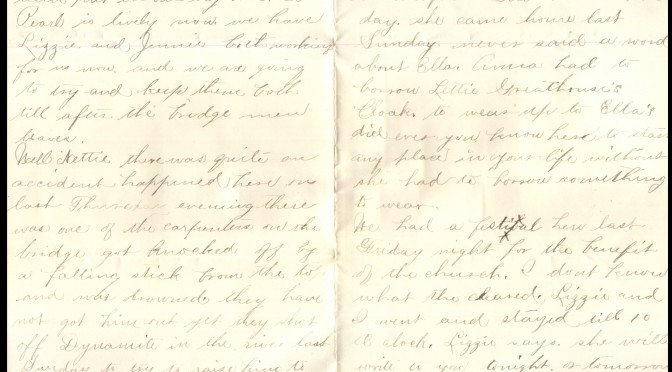 Pearl is lively now. we have
Lizzie and Jennie both working
for us now. and we are going
to try and keep them both
till after the bridge men
leaves.
Well Nettie there was quite an
accident happened here on
last Thursday evening there
was one of the carpenters on the
bridge got knocked off by
a falling stick from the top
and was drowned. they have
not got him out yet they shot
off Dynamite in the river last
Sunday to try to raise him to
day. she came home last
Sunday. never said a word
about Ella. had to
borrow Lettie Greathouse's
Cloak. to wear up to Ella's
did ever you know her to
any place in your life without
she had to borrow something
to wear.
We had a festival here last
Friday night for the benefit
of the church. I dont know
what the cleared. Lizzie and
I went and stayed till 10
O clock. Lizzie says. she will
write to you tonight. or tomorrow